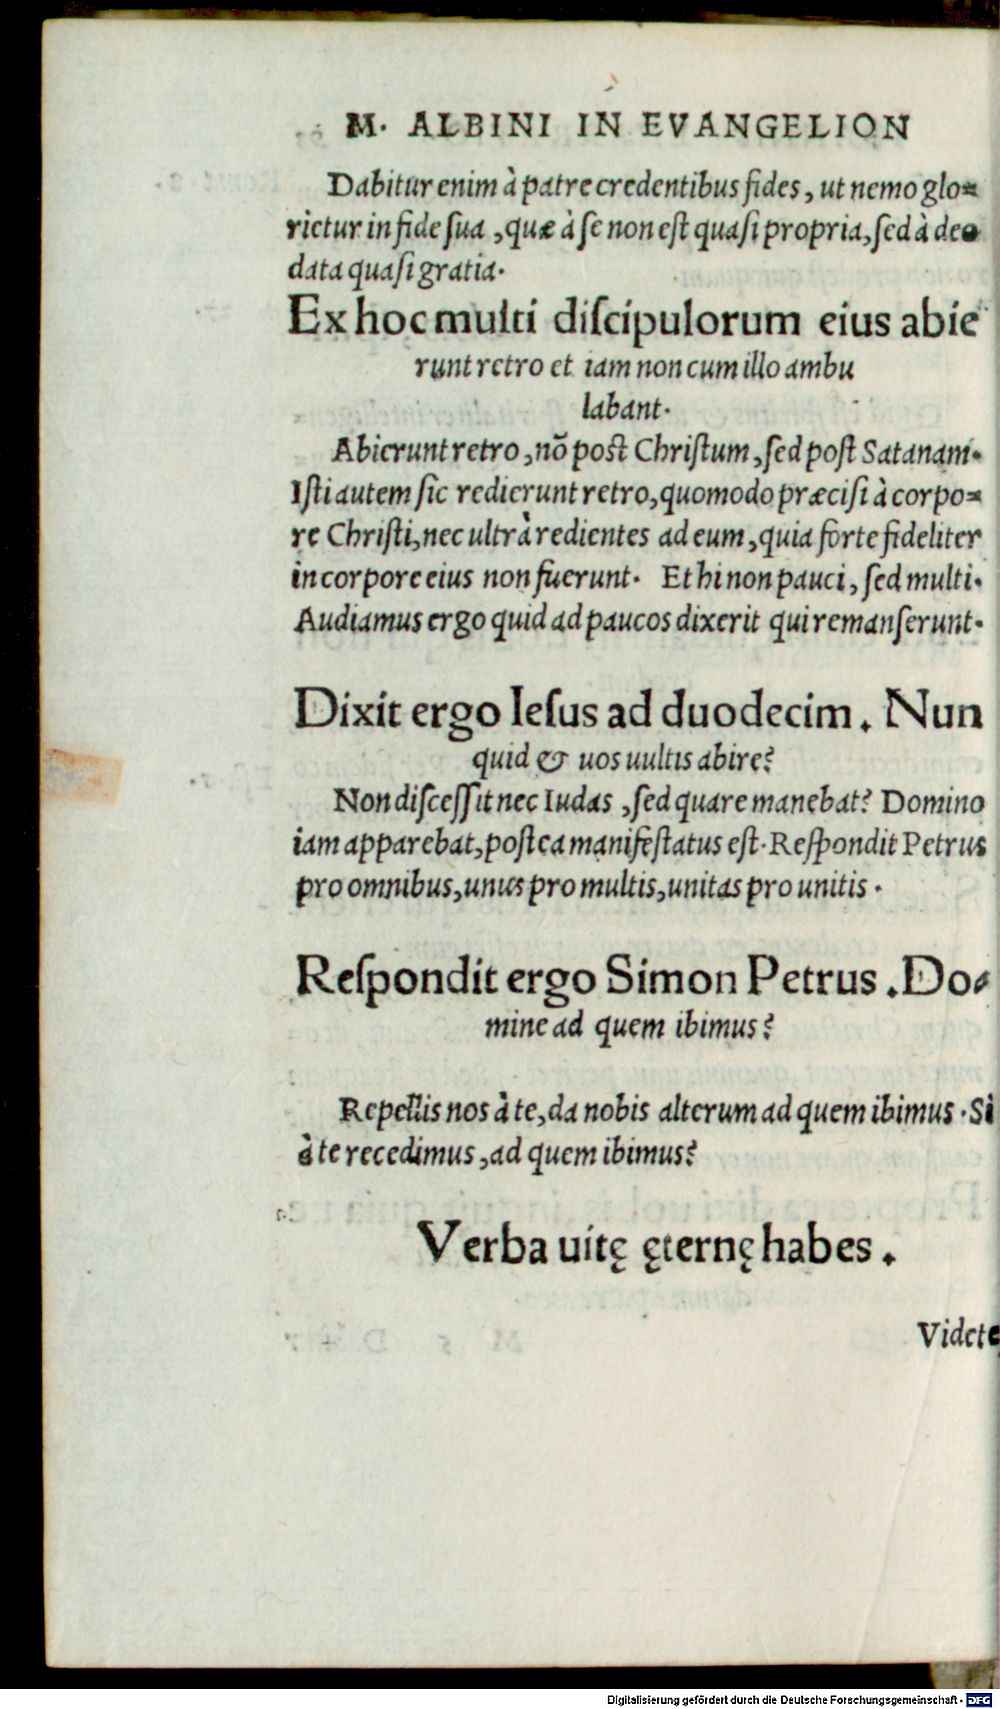 M. ALBINI IN EVANGELION
Dabitur enim à patre credentibus fides, ut nemo glo=
rietur in fide sua, quæ à se non est quasi propria, sed à deo
data quasi gratia.
Ex hoc multi discipulorum eius abie
runt retro et iam non cum illo ambu
labant.
Abierunt retro, nõ post Christum, sed post Satanam.
Isti autem sic redierunt retro, quomodo præcisi à corpo=
re Christi, nec ultrà redientes ad eum, quia forte fideliter
in corpore eius non fuerunt. Et hi non pauci, sed multi.
Audiamus ergo quid ad paucos dixerit qui remanserunt.
Dixit ergo Iesus ad duodecim. Nun
quid & uos uultis abire?
Non discessit nec Iudas, sed quare manebat? Domino
iam apparebat, postea manifestatus est. Respondit Petrus
pro omnibus, unus pro multis, unitas pro unitis.
Respondit ergo Simon Petrus. Do=
mine ad quem ibimus?
Repellis nos à te, da nobis alterum ad quem ibimus. Si
à te recedimus, ad quem ibimus?
Verba uitę ęternę habes.
Videte
Digitalisierung gefördert durch die Deutsche Forschungsgemeinschaft - DFG